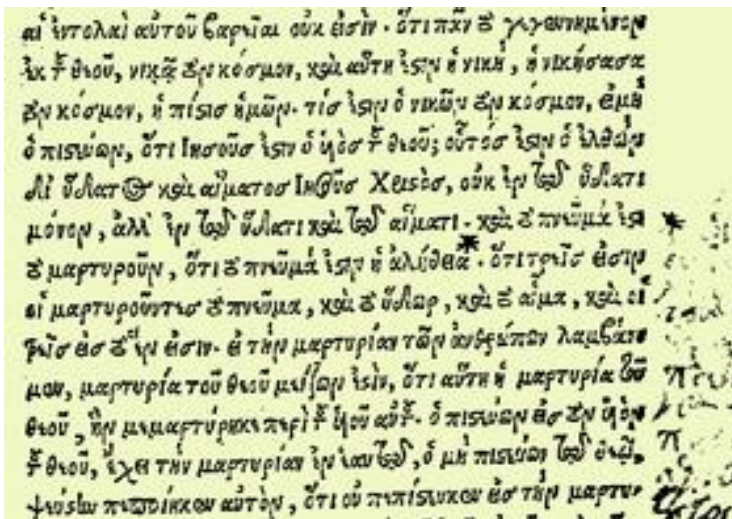 αἱ ἐντολαὶ αὐτοῦ βαρεῖαι οὐκ εἰσίν. ὅτι πᾶν τὸ γεγεννημένον
ἐκ τοῦ θεοῦ, νικᾷ τὸν κόσμον, καὶ αὕτη ἐστὶν ἡ νίκη, ἡ νικήσασα
τὸν κόσμον, ἡ πίστις ἡμῶν. τίς ἐστιν ὁ νικῶν τὸν κόσμον, εἰ μὴ
ὁ πιστεύων, ὅτι Ιησοῦς ἐστιν ὁ υἱὸς τοῦ θεοῦ; οὗτός ἐστιν ὁ ἐλθὼν
δι' ὕδατος καὶ αἵματος Ιησοῦς Χριστὸς, οὐκ ἐν τῷ ὕδατι
μόνον, ἀλλ' ἐν τῷ ὕδατι καὶ τῷ αἵματι. καὶ τὸ πνεῦμά ἐστι
τὸ μαρτυροῦν, ὅτι τὸ πνεῦμά ἐστιν ἡ ἀλήθεια. * ὅτι τρεῖς εἰσιν
οἱ μαρτυροῦντες τὸ πνεῦμα, καὶ τὸ ὕδωρ, καὶ τὸ αἷμα, καὶ οἱ
τρεῖς εἰς τὸ ἕν εἰσιν. εἰ τὴν μαρτυρίαν τῶν ἀνθρώπων λαμβάνο
μεν, μαρτυρία τοῦ θεοῦ μείζων ἐστὶν, ὅτι αὕτη ἡ μαρτυρία τοῦ
θεοῦ, ἣν μεμαρτύρηκε περὶ τοῦ υἱοῦ αὐτοῦ. ὁ πιστεύων εἰς τὸν υἱὸν
τοῦ θεοῦ, ἔχει τὴν μαρτυρίαν ἐν ἑαυτῷ, ὁ μὴ πιστεύων τῷ θεῷ,
ψεύστην πεποίηκεν αὐτὸν, ὅτι οὐ πεπίστευκεν εἰς τὴν μαρτυρ